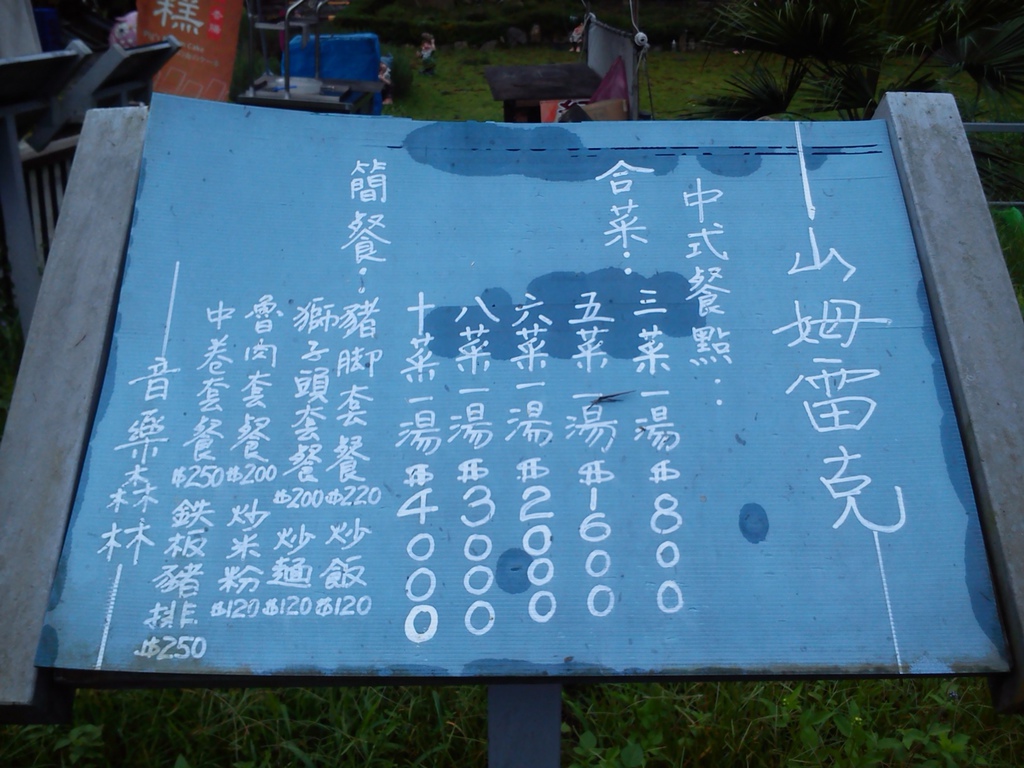 山姆雷克
中式餐點：
合菜：
三菜一湯$800
五菜一湯$1600
六菜一湯$2000
八菜一湯$3000
十菜一湯$4000
簡餐：
豬腳套餐$220
炒飯$120
獅子頭套餐$200
炒麵$120
魯肉套餐$200
炒米粉$120
中卷套餐$250
鉄板豬排$250
音樂森林
糕